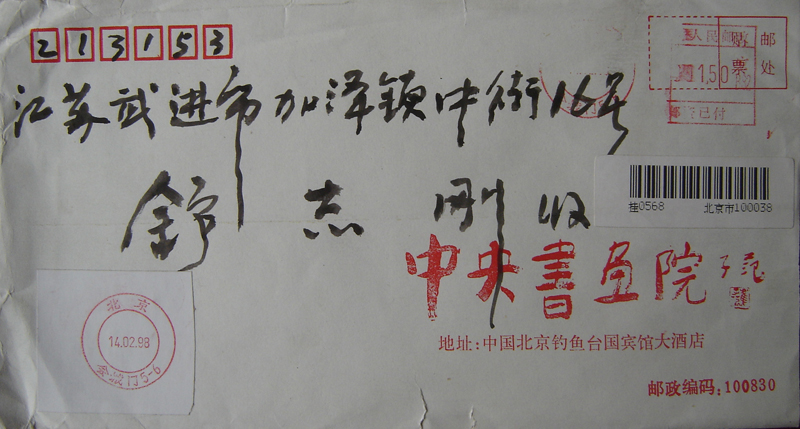 213153
邮
票
处
1.50
已付
江苏武进市加泽镇中街16号
舒志刚收
挂0568 北京市100038
中央书画院 子苑
北京
14.02.98
5-6
地址:中国北京钓鱼台国宾馆大酒店
邮政编码:100830